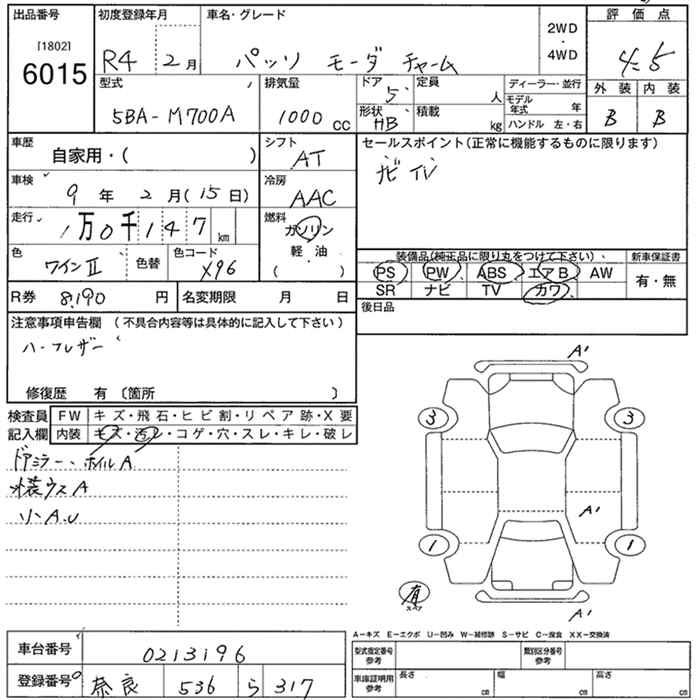 出品番号
[1802]
6015
初度登録年月
R4 2月
車名・グレード
パッソ モーダ チャーム
2WD
・
4WD
評価点
4.5
外装 内装
B B
型式
5BA-M700A
排気量
1000 CC
ドア
5
形状
HB
定員
人
積載
kg
ディーラー・並行
モデル年式 年
ハンドル 左・右
車歴
自家用・( )
シフト
AT
セールスポイント(正常に機能するものに限ります)
ナビ TV
車検
9年 2月(15日)
冷房
AAC
走行
1万0千147 km
燃料
ガソリン
軽・油
( )
色
ワインⅡ
色替
色コード
X96
装備品(純正品に限り丸をつけて下さい)
新車保証書
PS PW ABS エアB AW
SR ナビ TV カワ
有・無
R券 8,190 円
名変期限 月 日
後日品
注意事項申告欄 (不具合内容等は具体的に記入して下さい)
修復歴 有 〔箇所 〕
検査員
記入欄
FW キズ・飛石・ヒビ割・リペア跡・X要
内装 キズ・汚レ・コゲ・穴・スレ・キレ・破レ
ドアミラー、ホイルA
外装ウスA
リA.U
A'
3 3
A'
1 1
有
スペア
A'
A-キズ E-エクボ U-凹み W-補修跡 S-サビ C-腐食 XX-交換済
車台番号
0213196
登録番号
奈良 536 ら 317
型式指定番号
参考
類別区分番号
参考
車庫証明用
参考
長さ cm
幅 cm
高さ cm